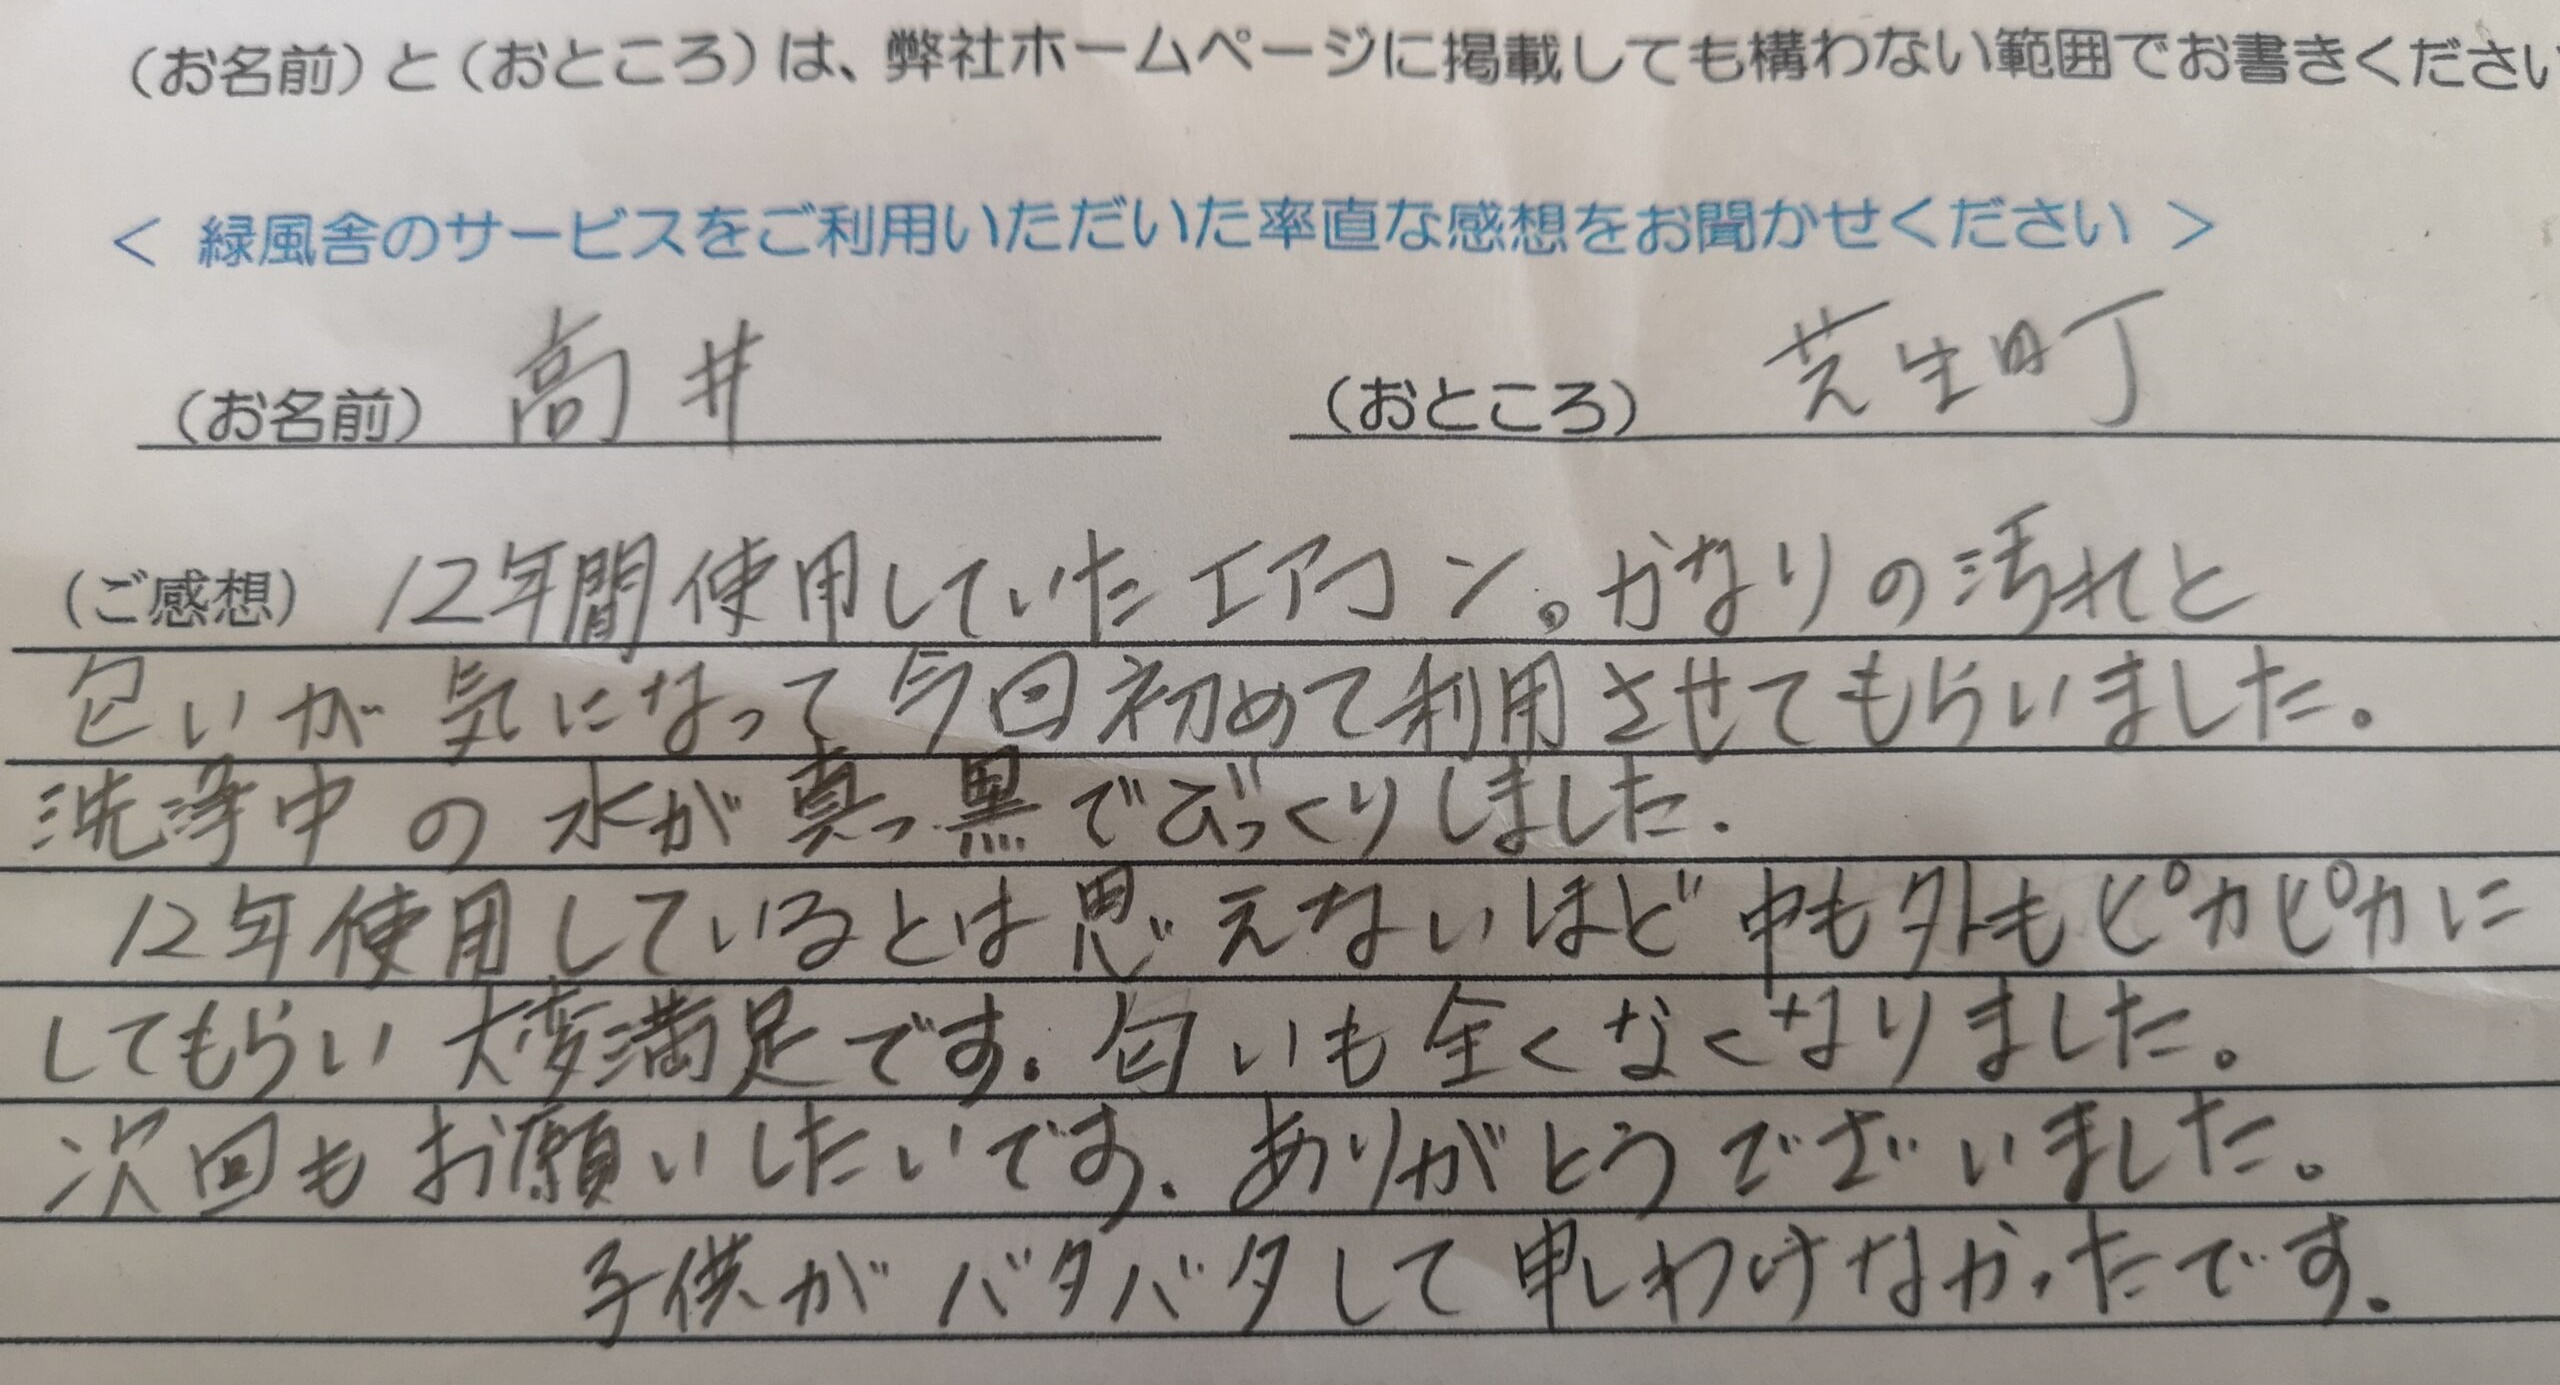 （お名前）と（おところ）は、弊社ホームページに掲載しても構わない範囲でお書きください
＜ 緑風舎のサービスをご利用いただいた率直な感想をお聞かせください ＞
（お名前） 高井 （おところ） 芝生町
（ご感想） 12年間使用していたエアコン。かなりの汚れと
匂いが気になって今回初めて利用させてもらいました。
洗浄中の水が真っ黒でびっくりしました.
12年使用しているとは思えないほど中も外もピカピカに
してもらい大変満足です。匂いも全くなくなりました。
次回もお願いしたいです。ありがとうございました。
子供がバタバタして申しわけなかったです。